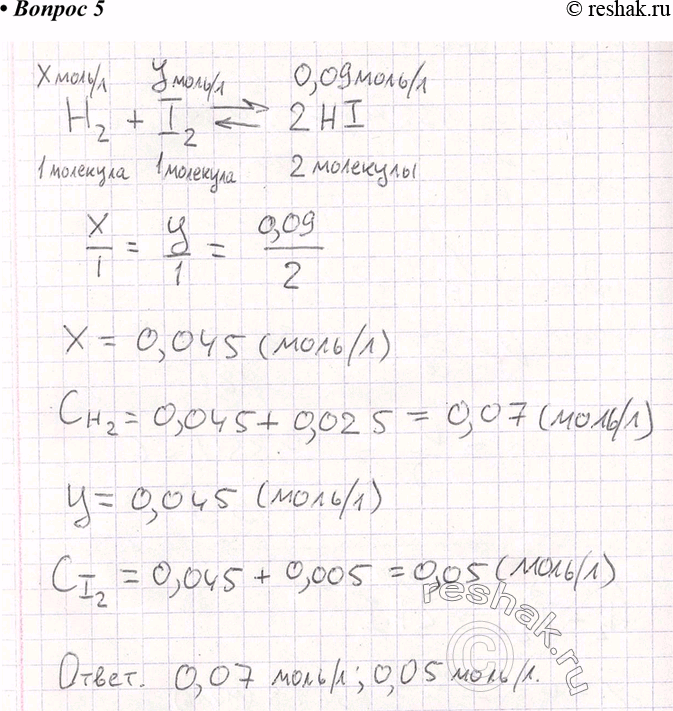 • Вопрос 5
© reshak.ru
X моль/л У моль/л 0,09 моль/л
H₂ + I₂ ⇄ 2 HI
1 молекула 1 молекула 2 молекулы
X/1 = У/1 = 0,09/2
X = 0,045 (моль/л)
C_H₂ = 0,045 + 0,025 = 0,07 (моль/л)
У = 0,045 (моль/л)
C_I₂ = 0,045 + 0,005 = 0,05 (моль/л)
reshak.ru
©
Ответ. 0,07 моль/л; 0,05 моль/л.